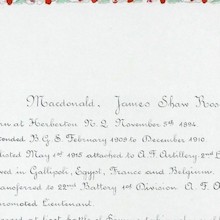 Macdonald, James Shaw Ros
rn at Herberton N. Q. November 5th 1894.
ended B G S. February 1909 to December 1910.
listed May 1st 1915 attached to A. F. Artillery 2nd L
ved in Gallipoli, Egypt, France and Belgium
ansferred to 22nd Battery 1st Division A. F. A
romoted Lieutenant.